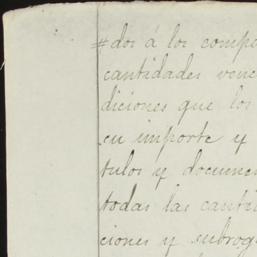 #dos á los compe
cantidades venc
diciones que los
su importe y
tulos y documen
todas las canti
ciones y subrog